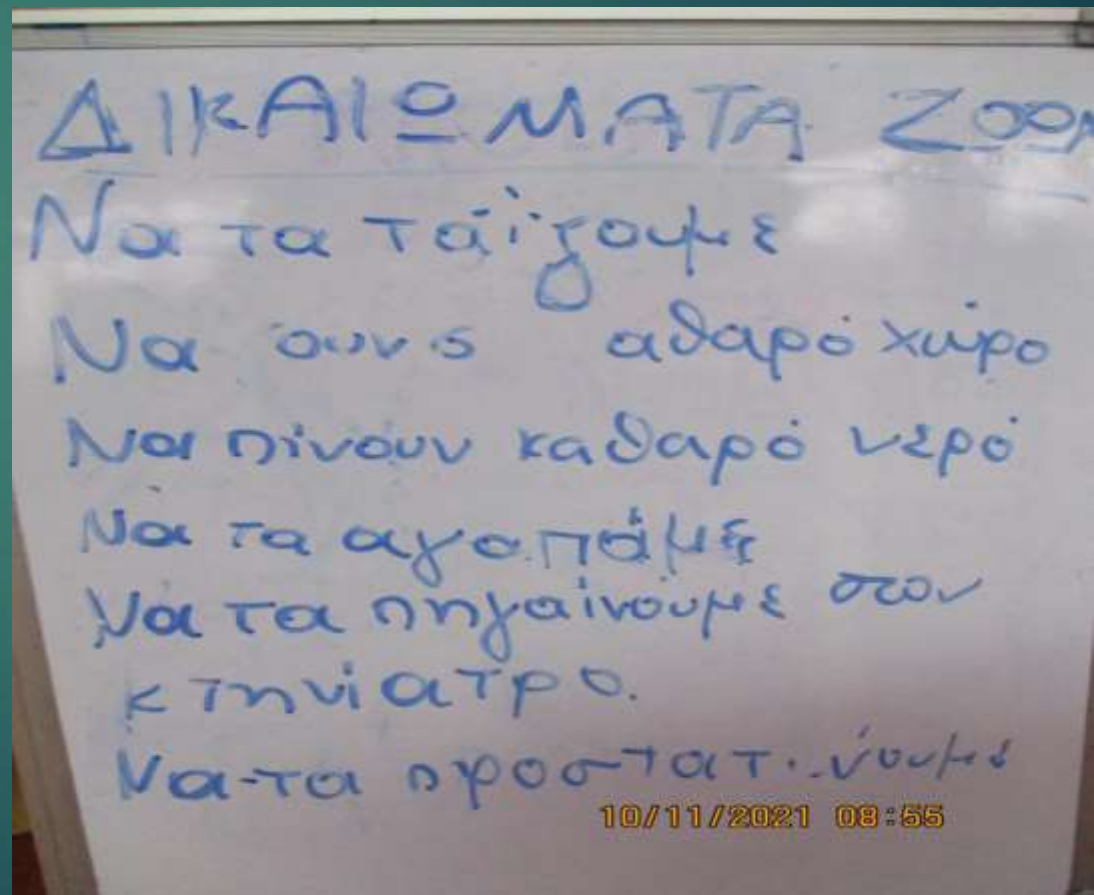 ΔΙΚΑΙΩΜΑΤΑ
Να τα τάϊζουμε
Να αθαρό χώρο
Να πίνουν καθαρό νερό
Να τα αγαπάμε
Να τα πηγαίνουμε στον
κτηνίατρο.
Να τα
10/11/2021 08:55